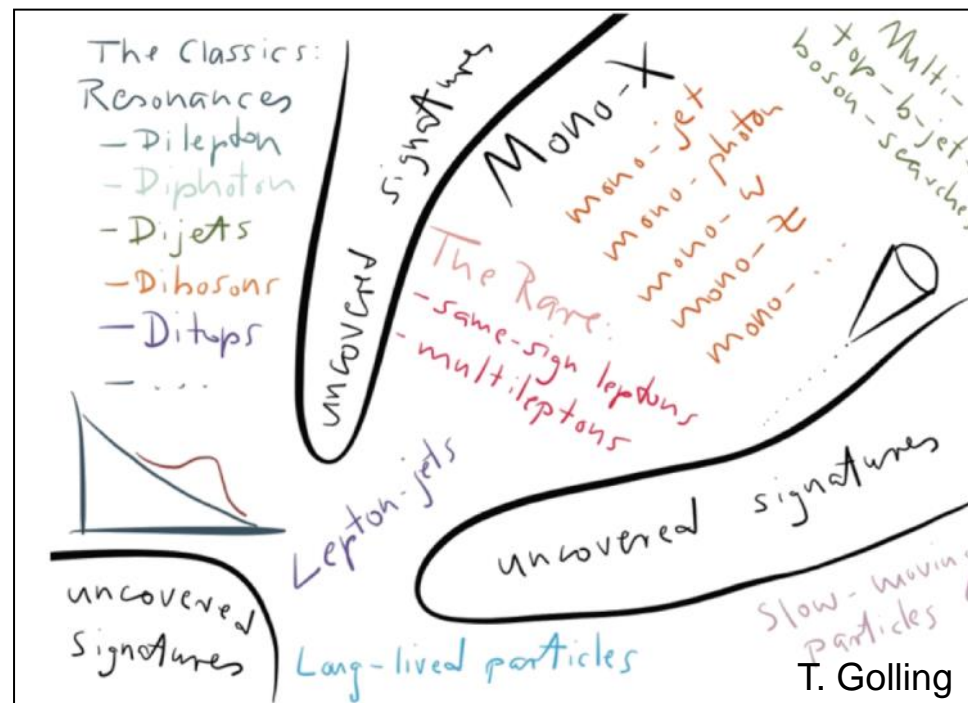 The Classics:
Resonances
- Dilepton
- Diphoton
- Dijets
- Dibosons
- Ditops
- ...
uncovered signatures
Mono-X
mono-jet
mono-photon
mono-W
mono-Z
mono-...
Multi-
top-b-jet-
boson-searches
The Rare:
- same-sign leptons
- multileptons
Lepton-jets
uncovered signatures
uncovered
signatures
Long-lived particles
Slow-moving
particles
T. Golling